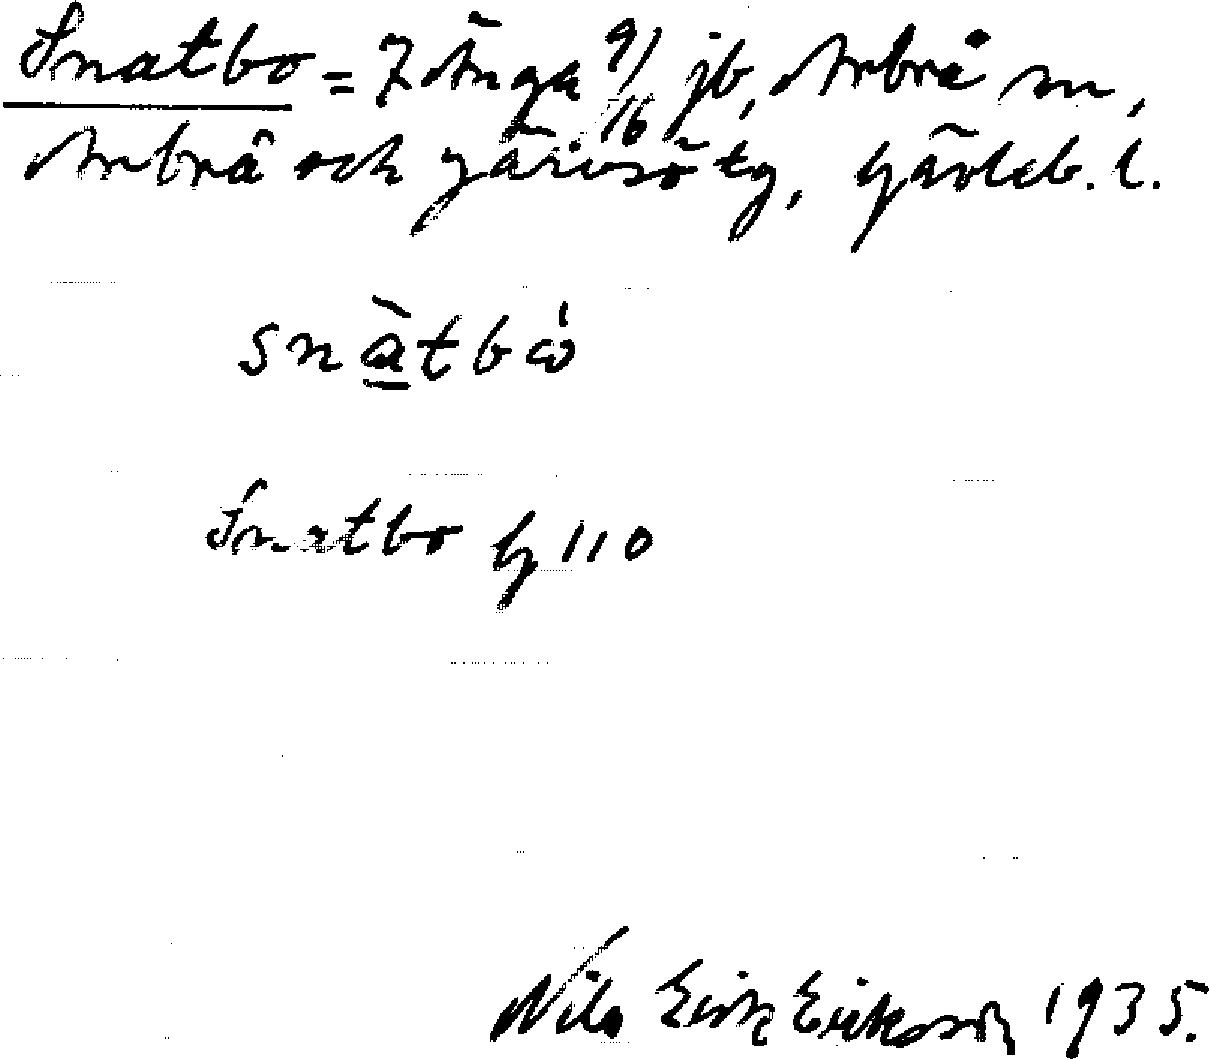 Snatbo = 7 Änga 9/16 jb, Arbrå sn,
Arbrå och Järvsö tg, Gävleb. l.
snàtbó
Snatbo G 110
Nils Eirik Eirikssson 1935.